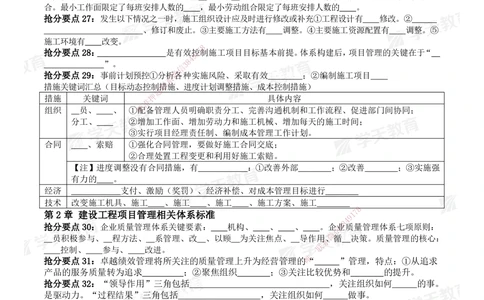 合。最小工作面限定了每班安排人数的____，最小劳动组合限定了每班安排人数的____。
抢分要点 27：发生以下情况之一时，施工组织设计应及时进行修改或补充①工程设计有____修改。②____
____、修订和废止。③主要施工方法有____调整。④主要施工资源配置有____调整。⑤
施工环境有____改变。
抢分要点 28：____是有效控制施工项目目标基本前提。体系构建后，项目管理的关键在于“__
____”。
抢分要点 29：事前计划预控①分析各种实施风险、采取有效____；②编制施工项目____
措施关键词汇总（目标动态控制措施、进度计划调整措施、成本控制措施）
措施 关键词 具体内容
组织 __员、____、分工、____ ①配备管理人员明确职责分工、完善沟通机制和工作流程、促进部门间协同；
②增加工作面、增加劳动力和施工机械、增加每天的施工时间；
③实行项目经理责任制、编制成本管理工作计划。
合同 ____、索赔 ①强化合同管理，要做好施工合同交底；
②合理处置工程变更和利用好施工索赔。
【注】进度调整没有合同措施，有____；①改善外部____；②改善____；③实施强
有力的____。
经济 ____支付、激励（奖罚）、经济补偿、对成本管理目标进行____
技术 改变施工机具、施工____、施工____、施工____、施工方案、施工____
第 2 章 建设工程项目管理相关体系标准
抢分要点 30：企业质量管理体系关键要素：____机构、____、____、____。企业质量管理体系七项原则：
__员积极参与、__程方法、__系管理、改__、以顾__为关注焦点、__导作用、循__决策。质量管理的核心：
____控制、____参与、____改进。
抢分要点 31：卓越绩效管理将所关注的质量管理上升为经营管理的“____”管理，特点：①从追求
产品的服务质量转为追求____；②聚焦组织____；③关注比较优势和____的提升。
抢分要点 32：“领导作用”三角包括____，关注组织如何____的事。
是驱动力。“过程结果”三角包括____，关注组织如何____做事，